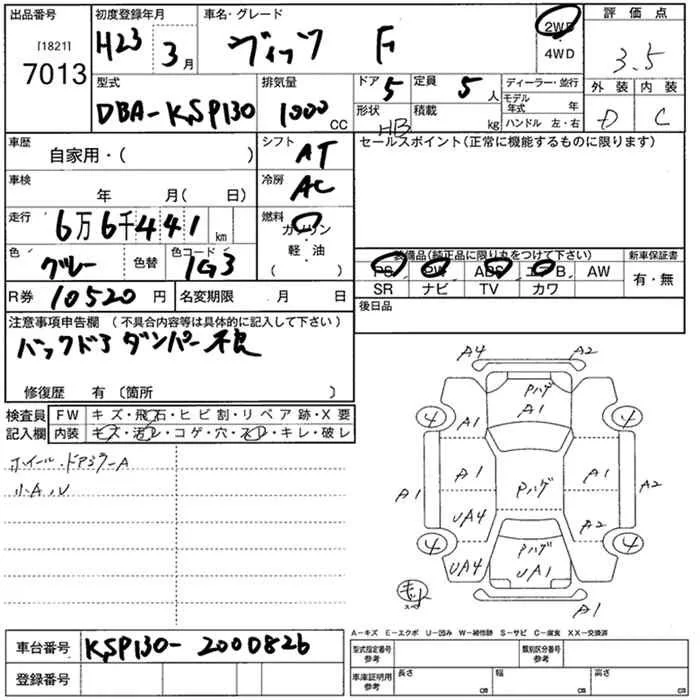 出品番号 初度登録年月 車名・グレード 2WD 評価点
[1821] H23 3月 ヴィッツ F ・ 4WD 3.5
7013
型式 排気量 ドア 5 定員 5人 ディーラー・並行 外装 内装
DBA-KSP130 1000 CC 形状 HB 積載 kg モデル年式 年 D C
ハンドル 左・右
車歴 自家用・( ) シフト AT セールスポイント(正常に機能するものに限ります)
車検 年 月( 日) 冷房 AC
走行 6万6千441 km 燃料 ガソリン・軽・油 ( )
色 グレー 色替 色コード 1G3 装備品(純正品に限り丸をつけて下さい) 新車保証書
PS PW ABS エアB. AW 有・無
SR ナビ TV カワ
R券 10520円 名変期限 月 日 後日品
注意事項申告欄 (不具合内容等は具体的に記入して下さい)
バックドア ダンパー 不良
修復歴 有 〔箇所 〕
検査員 FW キズ・飛石・ヒビ割・リペア跡・X要
記入欄 内装 キズ・汚レ・コゲ・穴・スレ・キレ・破レ
小A,U
A4 A2
Pハゲ
A1
4 A1 4
A1 A1 Pハゲ A1 A2
UA4 A2
4 Pハゲ 4
UA4 UA1
A1
A-キズ E-エクボ U-凹み W-補修跡 S-サビ C-腐食 XX-交換済
車台番号 KSP130-2000826 型式指定番号 参考 類別区分番号 参考
登録番号 車庫証明用 参考 長さ cm 幅 cm 高さ cm